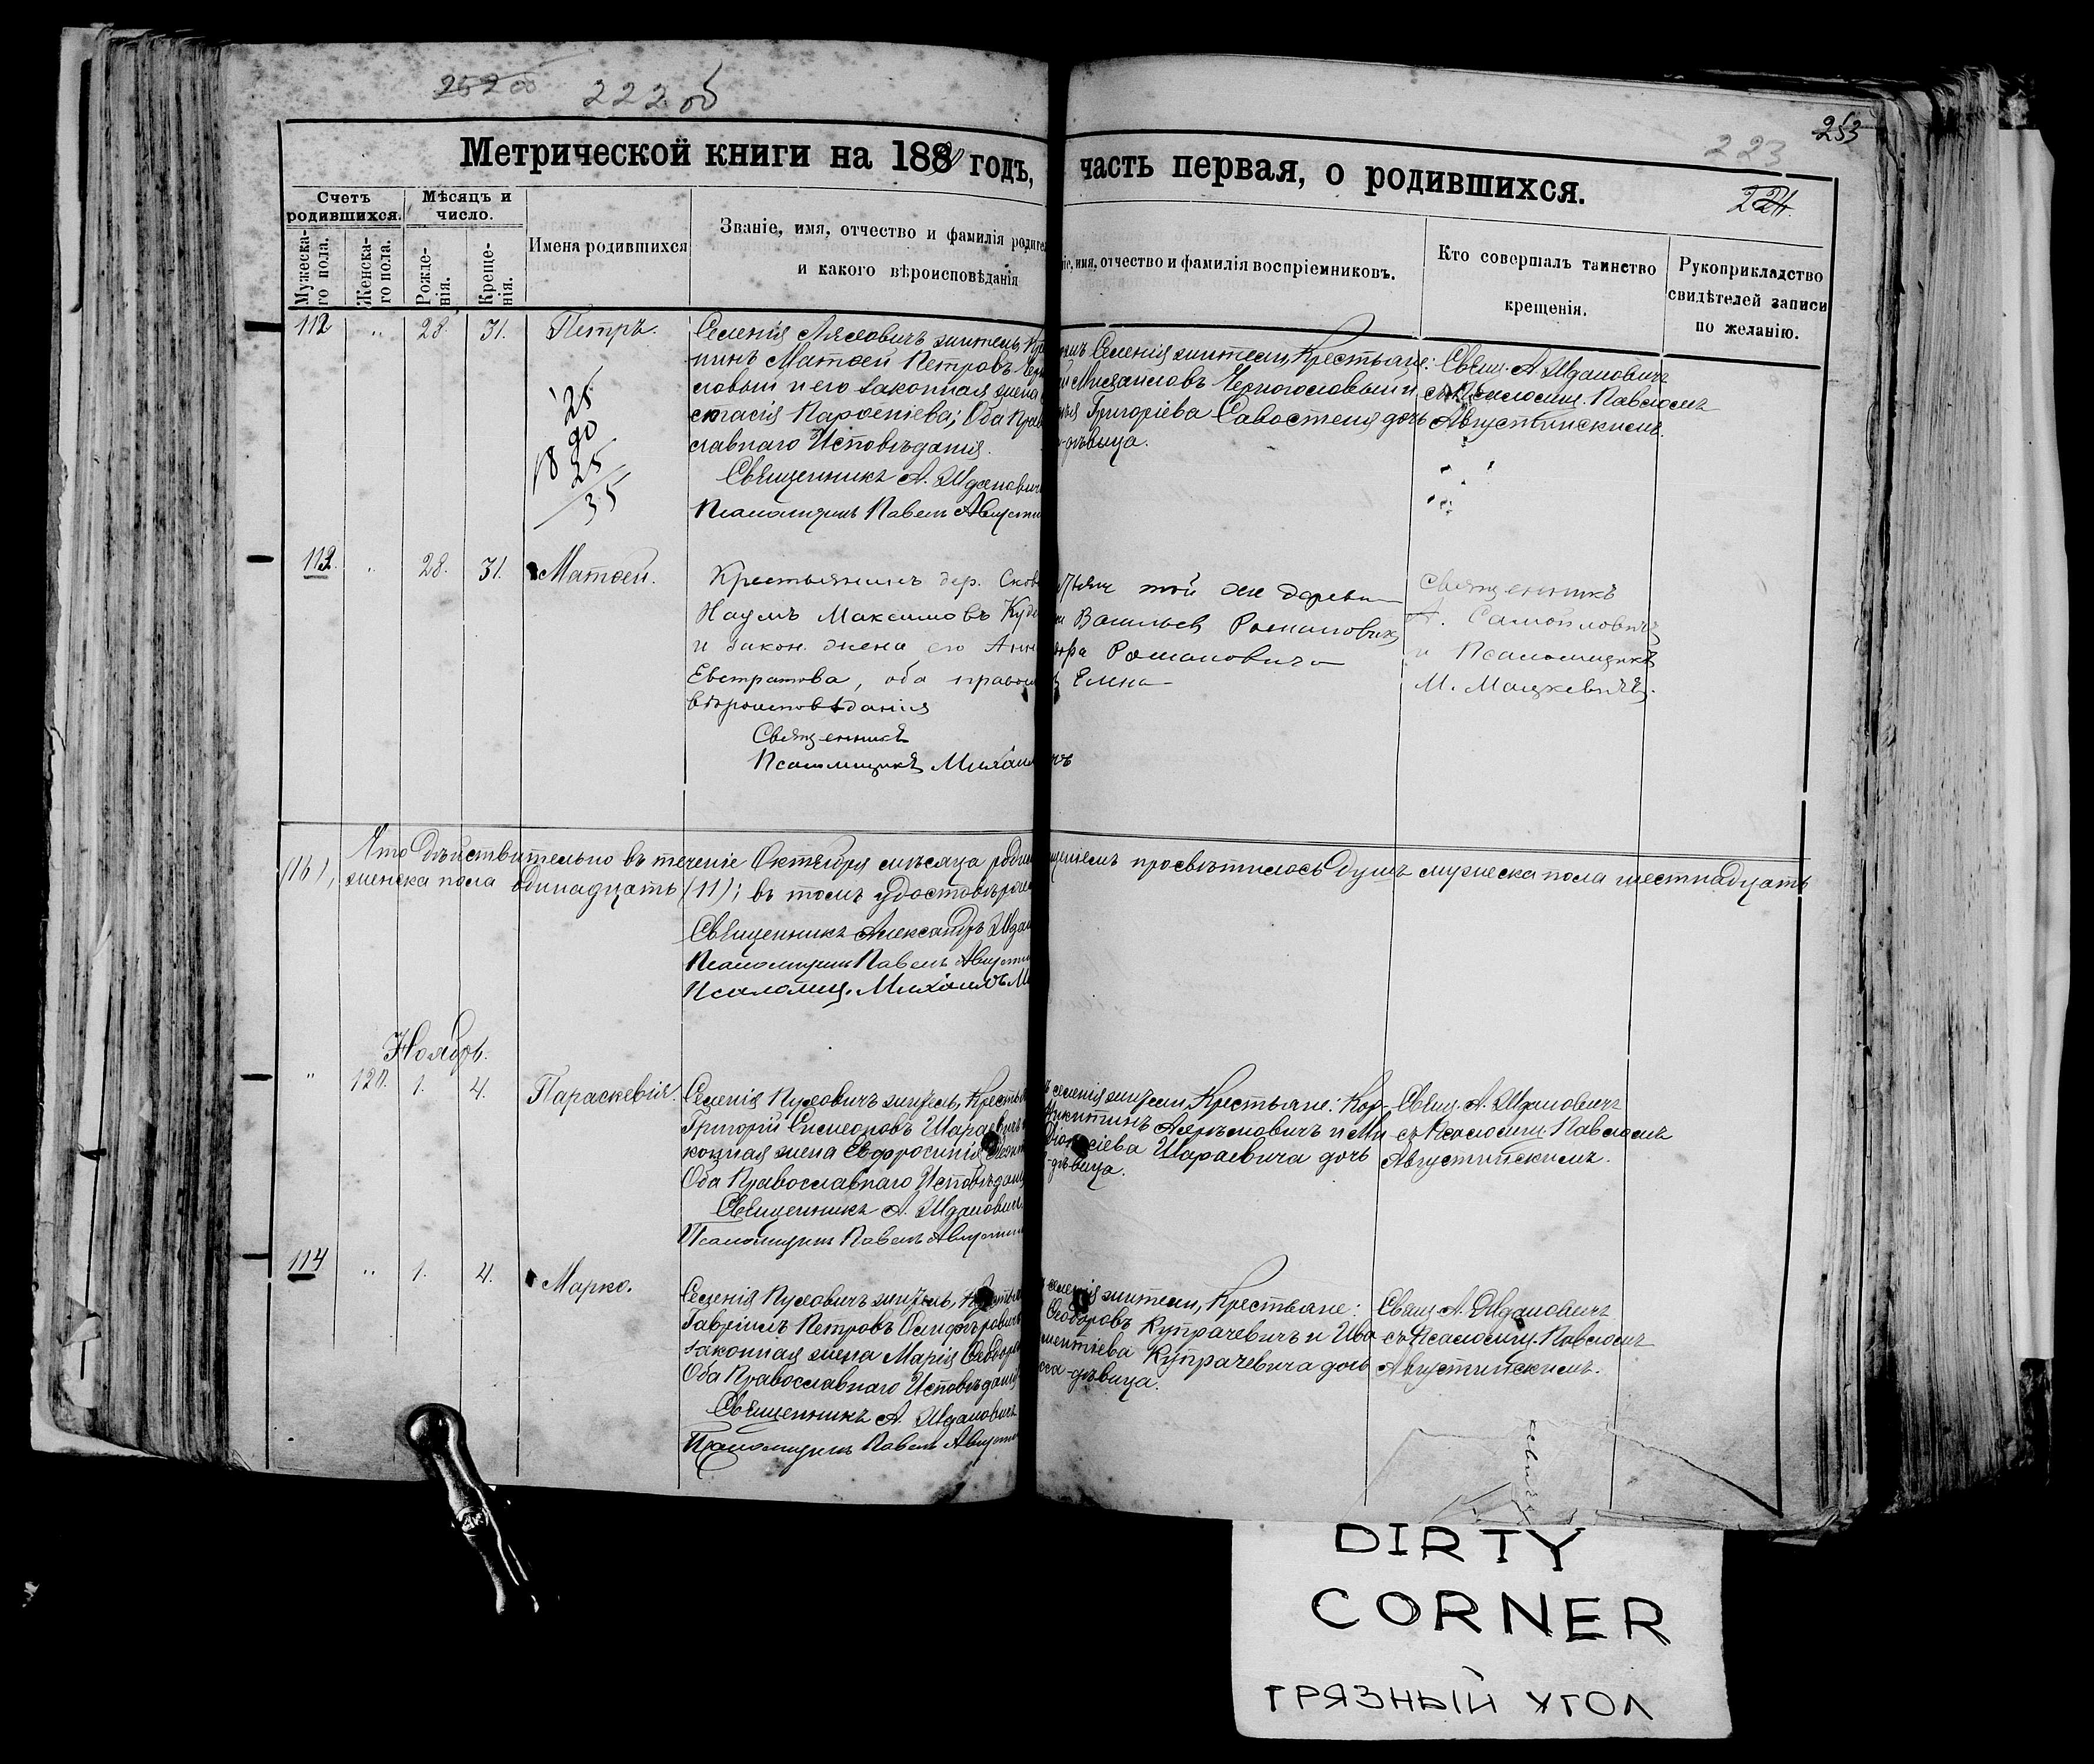 252 об
222 об
253
223
224
Метрической книги на 1890 годъ, часть первая, о родившихся.
Счетъ родившихся.
Мужеска-го пола.
Женска-го пола.
Мѣсяцъ и число.
Рожде-нія.
Креще-нія.
Имена родившихся
Званіе, имя, отчество и фамилія родител
и какого вѣроисповѣданія
іе, имя, отчество и фамилія воспріемниковъ.
Кто совершалъ таинство
крещенія.
Рукоприкладство
свидѣтелей записи
по желаніи.
112 " 28. 31. Петръ.
Селенія Лясковичъ житель, Кре
нинъ Матѳей Петровъ Чер
ловый и его законная жена
стасія Парѳеніева; Оба Прав
славнаго Исповѣданія.
Священникъ А. Ждановичъ
Псаломщикъ Павелъ Августи
Селенія жители, Крестьяне:
Михаиловъ Черноголовый и
Григоріева Савостеня дочь
дѣвица.
Свящ. А. Ждановичъ
съ Псаломщ. Павломъ
Августинскимъ.
25
90
18 25
35
113. " 28. 31. Матѳей.
Крестьянинъ дер. Сков
Наумъ Максимовъ Куде
и закон. жена его Анн
Евстратова, оба правосл
вѣроисповѣданія
Священникъ
Псаломщикъ Михаил
той же деревн
Васильев Романович
Романовича
Елена
Священникъ
А. Самойловичъ
и Псаломщикъ
М. Мацкевичъ.
Что дѣйствительно въ теченіе Октября мѣсяца роди щеніемъ просвѣтилось душъ мужеска пола шестнадцать
(16), женска пола одинадцать (11); въ томъ удостовѣряе
Священникъ Александръ Ждан
Псаломщикъ Павелъ Августи
Псаломщ. Михаилъ М
Ноябрь.
" 120. 1. 4. Параскевія.
Селенія Пуховичъ житель, Крестья
Григорій Сисмеоровъ Шараевичъ
конная жена Евфросинія
Оба Православнаго Исповѣдані
Священникъ А. Ждановичъ.
Псаломщикъ Павелъ Августин
селенія жители, Крестьяне: Кор-
Никитинъ Ахремовичъ и Ма
Шараевича дочь
дѣвица.
Свящ. А. Ждановичъ
съ Псаломщ. Павломъ
Августинскимъ.
114 " 1. 4. Марко.
Селенія Пуховичъ житель, Крестья
Гавріилъ Петровъ
законная жена Марія Ѳеодоро
Оба Православнаго Исповѣдані
Священникъ А. Ждановичъ
Псаломщикъ Павелъ Августи
селенія жители, Крестьяне:
Ѳеодоровъ Купрачевичъ и Ива
ментіева Купрачевича дочь
дѣвица.
Свящ. А. Ждановичъ
съ Псаломщ. Павломъ
Августинскимъ.
DIRTY
CORNER
ГРЯЗНЫЙ УГОЛ